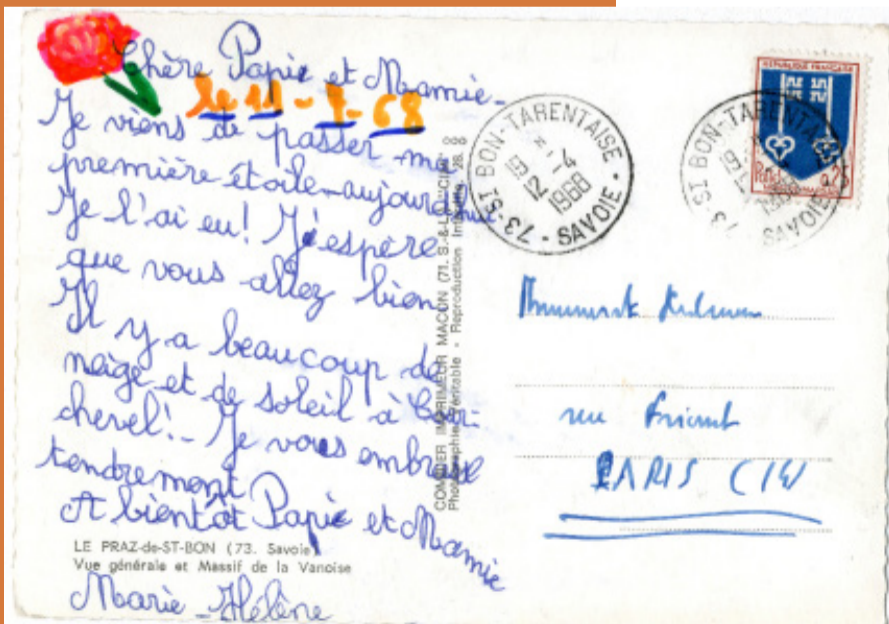 Chère Papie et Mamie-
le 11-4-68
Je viens de passer ma
première étoile-aujourd'hui
Je l'ai eu! J'éspère
que vous allez bien
Il y a beaucoup de
neige et de soleil à Cour-
chevel!- Je vous embrasse
tendrement
A bientôt Papie et Mamie
LE PRAZ-de-ST-BON (73. Savoie)
Vue générale et Massif de la Vanoise
Marie-Hélène
COMBIER IMPRIMEUR MACON (71. S.-&-L.)
Photographie Véritable - Reproduction
73-ST BON-TARENTAISE
19
12-4
1968
SAVOIE
REPUBLIQUE FRANÇAISE
0,25
73-ST BON-TARENTAISE
1968
SAVOIE
rue
PARIS